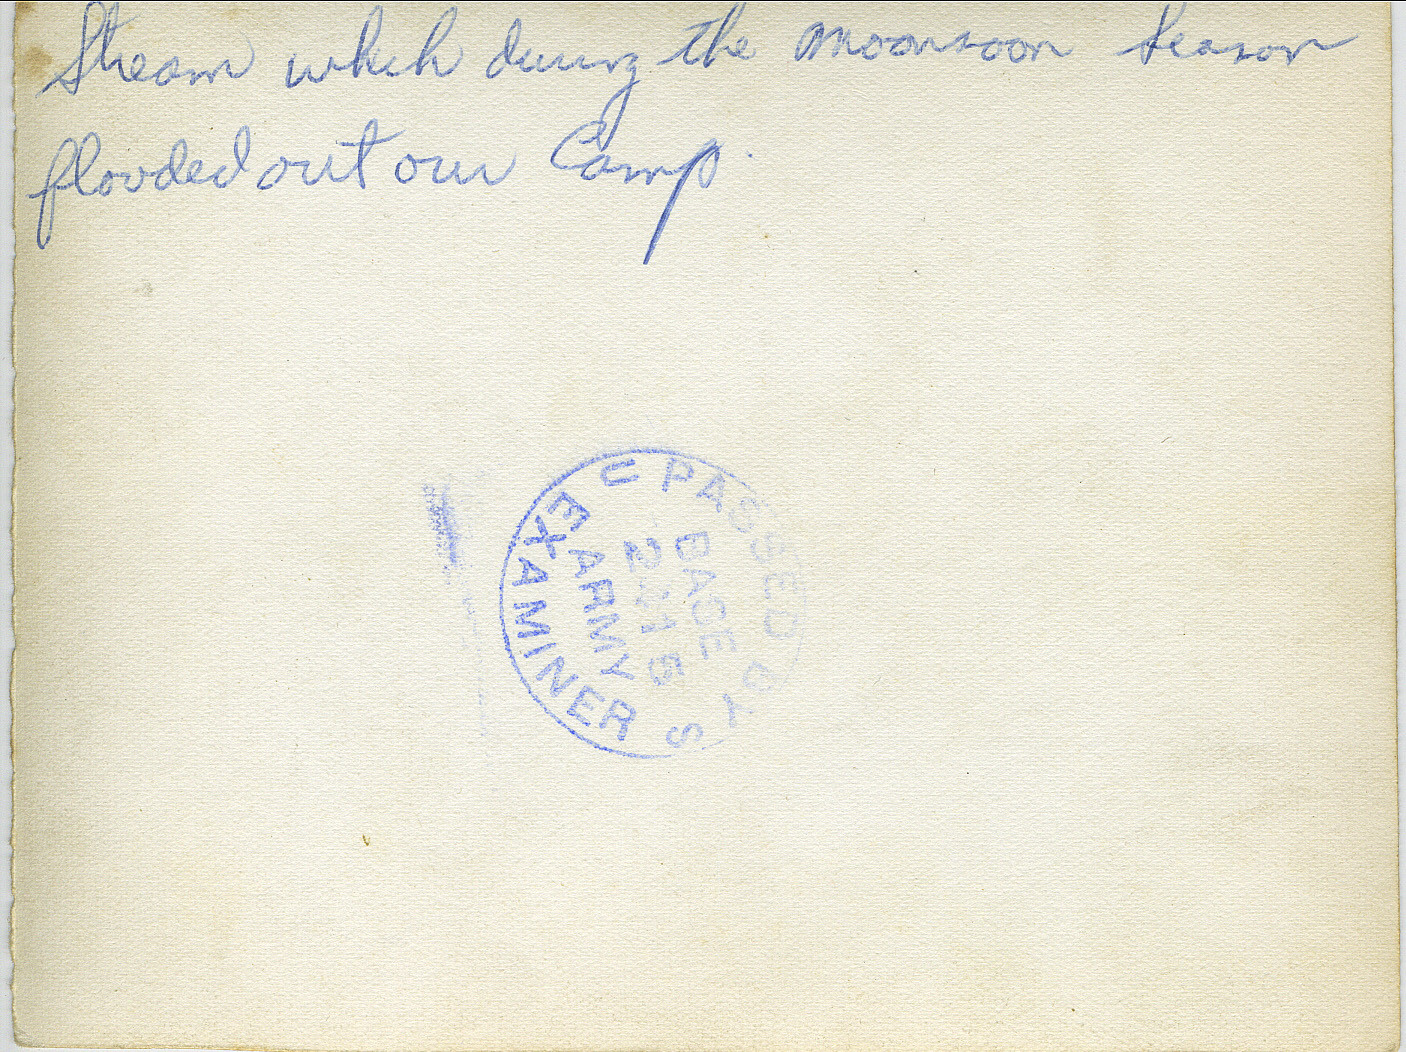 Stream which during the moonsoon season
flooded out our Camp.
PASSED BY
U S
BASE
ARMY
EXAMINER